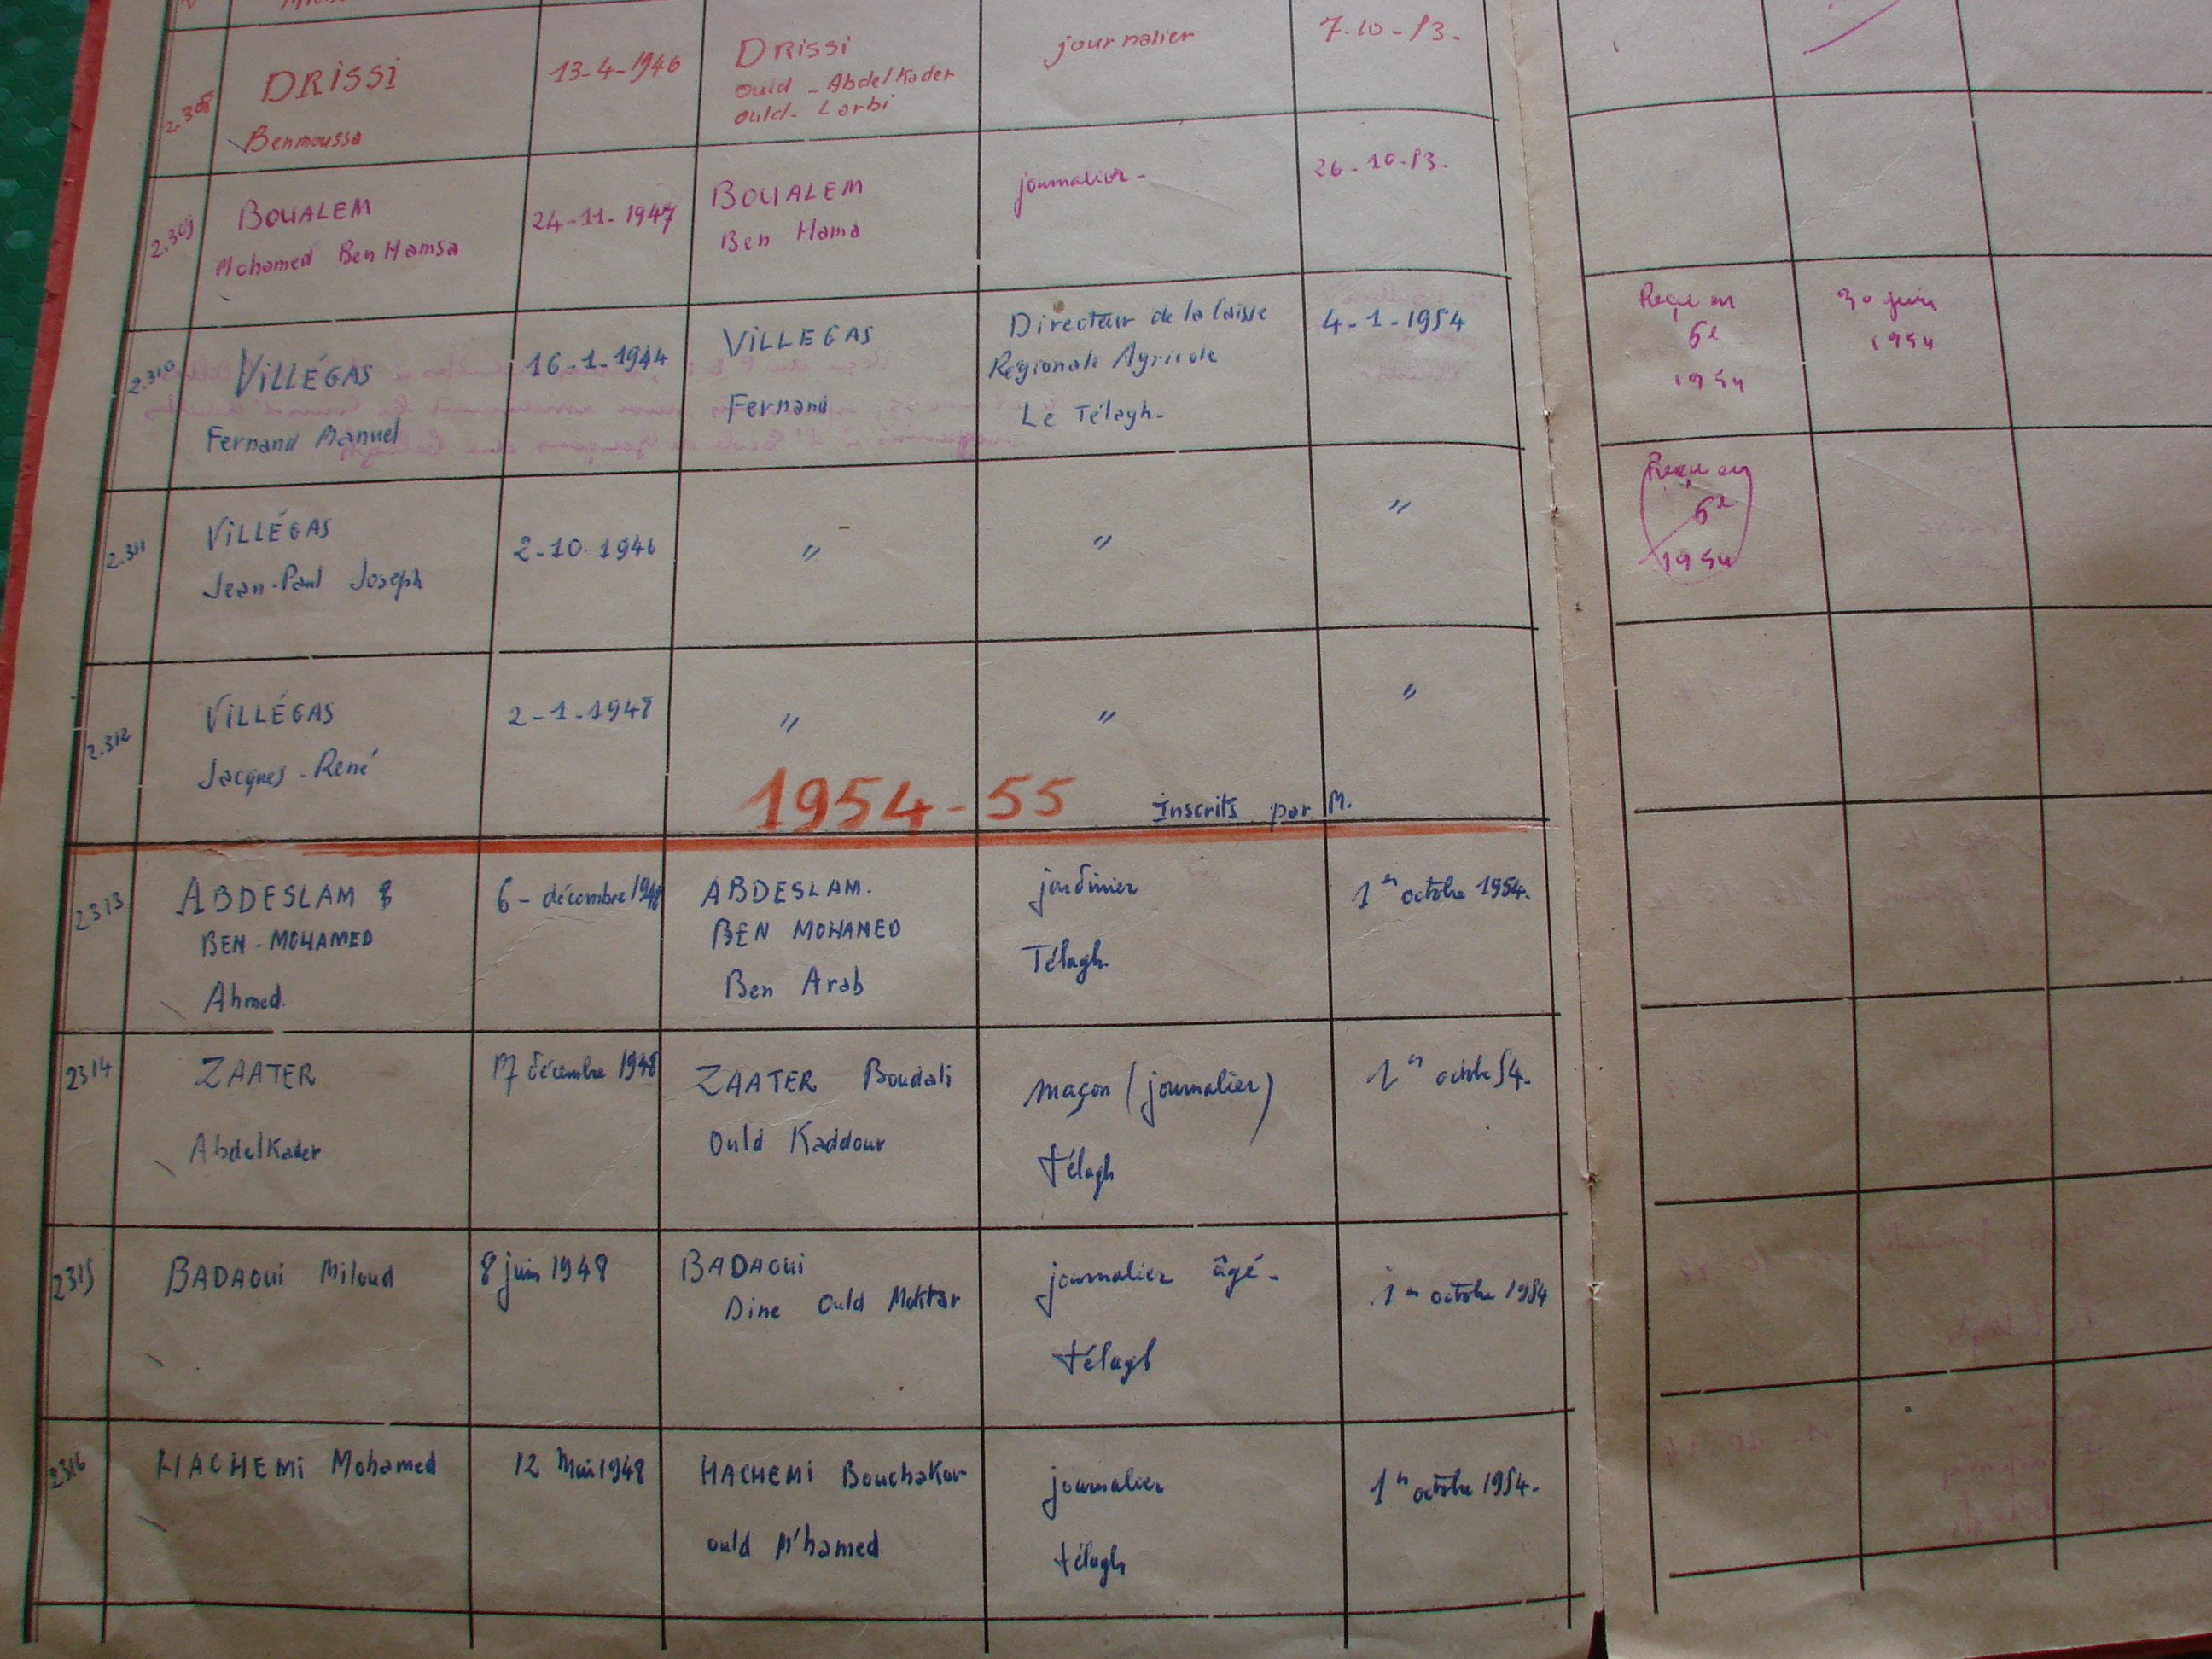 2.308
DRISSI
Benmoussa
13-4-1946
DRISSI
ould - Abdelkader
ould - Larbi
journalier
7-10-53.
2.309
BOUALEM
Mohamed Ben Hamsa
24-11-1947
BOUALEM
Ben Hama
journalier-
26-10-53.
2.310
VILLÉGAS
Fernand Manuel
16-1-1944
VILLEGAS
Fernand
Directeur de la Caisse
Régionale Agricole
Le Télagh-
4-1-1954
Reçu en
6e
1954
30 juin
1954
2.311
VILLÉGAS
Jean-Paul Joseph
2-10-1946
"
"
"
Reçu en
6e
1954
2.312
VILLÉGAS
Jacques-René
2-1-1948
"
"
"
1954-55
Inscrits par M.
2313
ABDESLAM
BEN-MOHAMED
Ahmed.
6-décembre 1948
ABDESLAM.
BEN MOHAMED
Ben Arab
jardinier
Télagh.
1er octobre 1954.
2314
ZAATER
Abdelkader
17 décembre 1948
ZAATER Boudali
Ould Kaddour
maçon (journalier)
télagh
1er octobre 54.
2315
BADAOUI Miloud
8 juin 1948
BADAOUI
Dine Ould Moktar
journalier âgé-
télagh
1er octobre 1954
2316
HACHEMI Mohamed
12 Mai 1948
HACHEMI Bouchakor
ould M'hamed
journalier
télagh
1er octobre 1954.